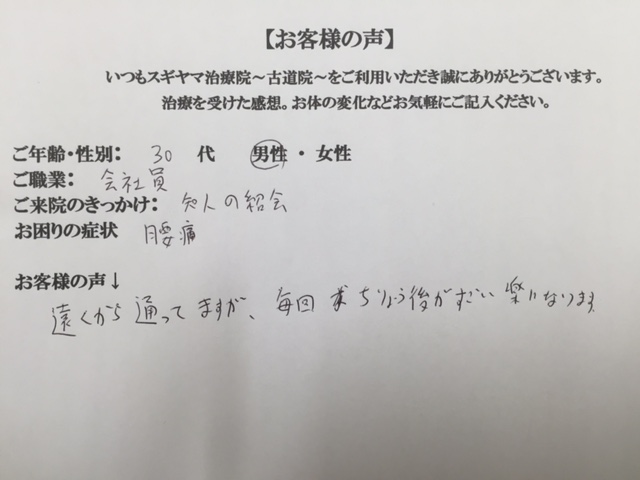 【お客様の声】
いつもスギヤマ治療院～古道院～をご利用いただき誠にありがとうございます。
治療を受けた感想。お体の変化などお気軽にご記入ください。
ご年齢・性別： 30 代 男性 ・ 女性
ご職業： 会社員
ご来院のきっかけ： 知人の紹介
お困りの症状 腰痛
お客様の声↓
遠くから通ってますが、毎回 ちりょう後がすごい楽になります